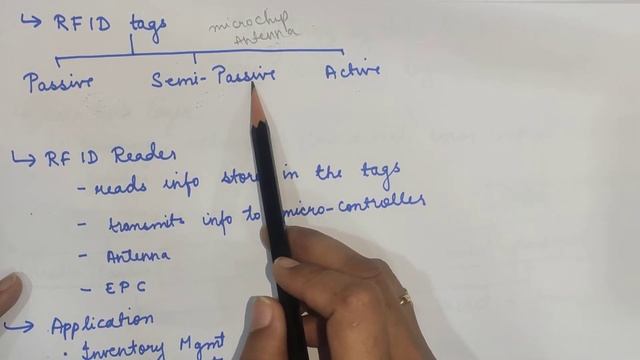 ↳ RFID tags
microchip
Antenna
Passive Semi-Passive Active
↳ RFID Reader
- reads info store in the tags
- transmits info to micro-controller
- Antenna
- EPC
↳ Application
• Inventory Mgmt